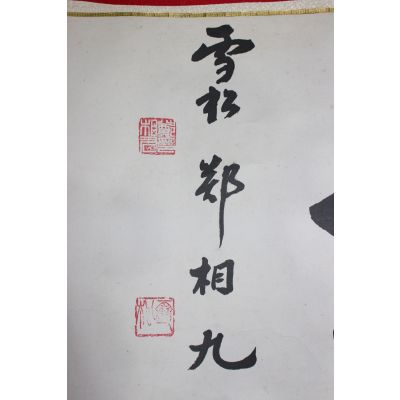 雪松 郑相九